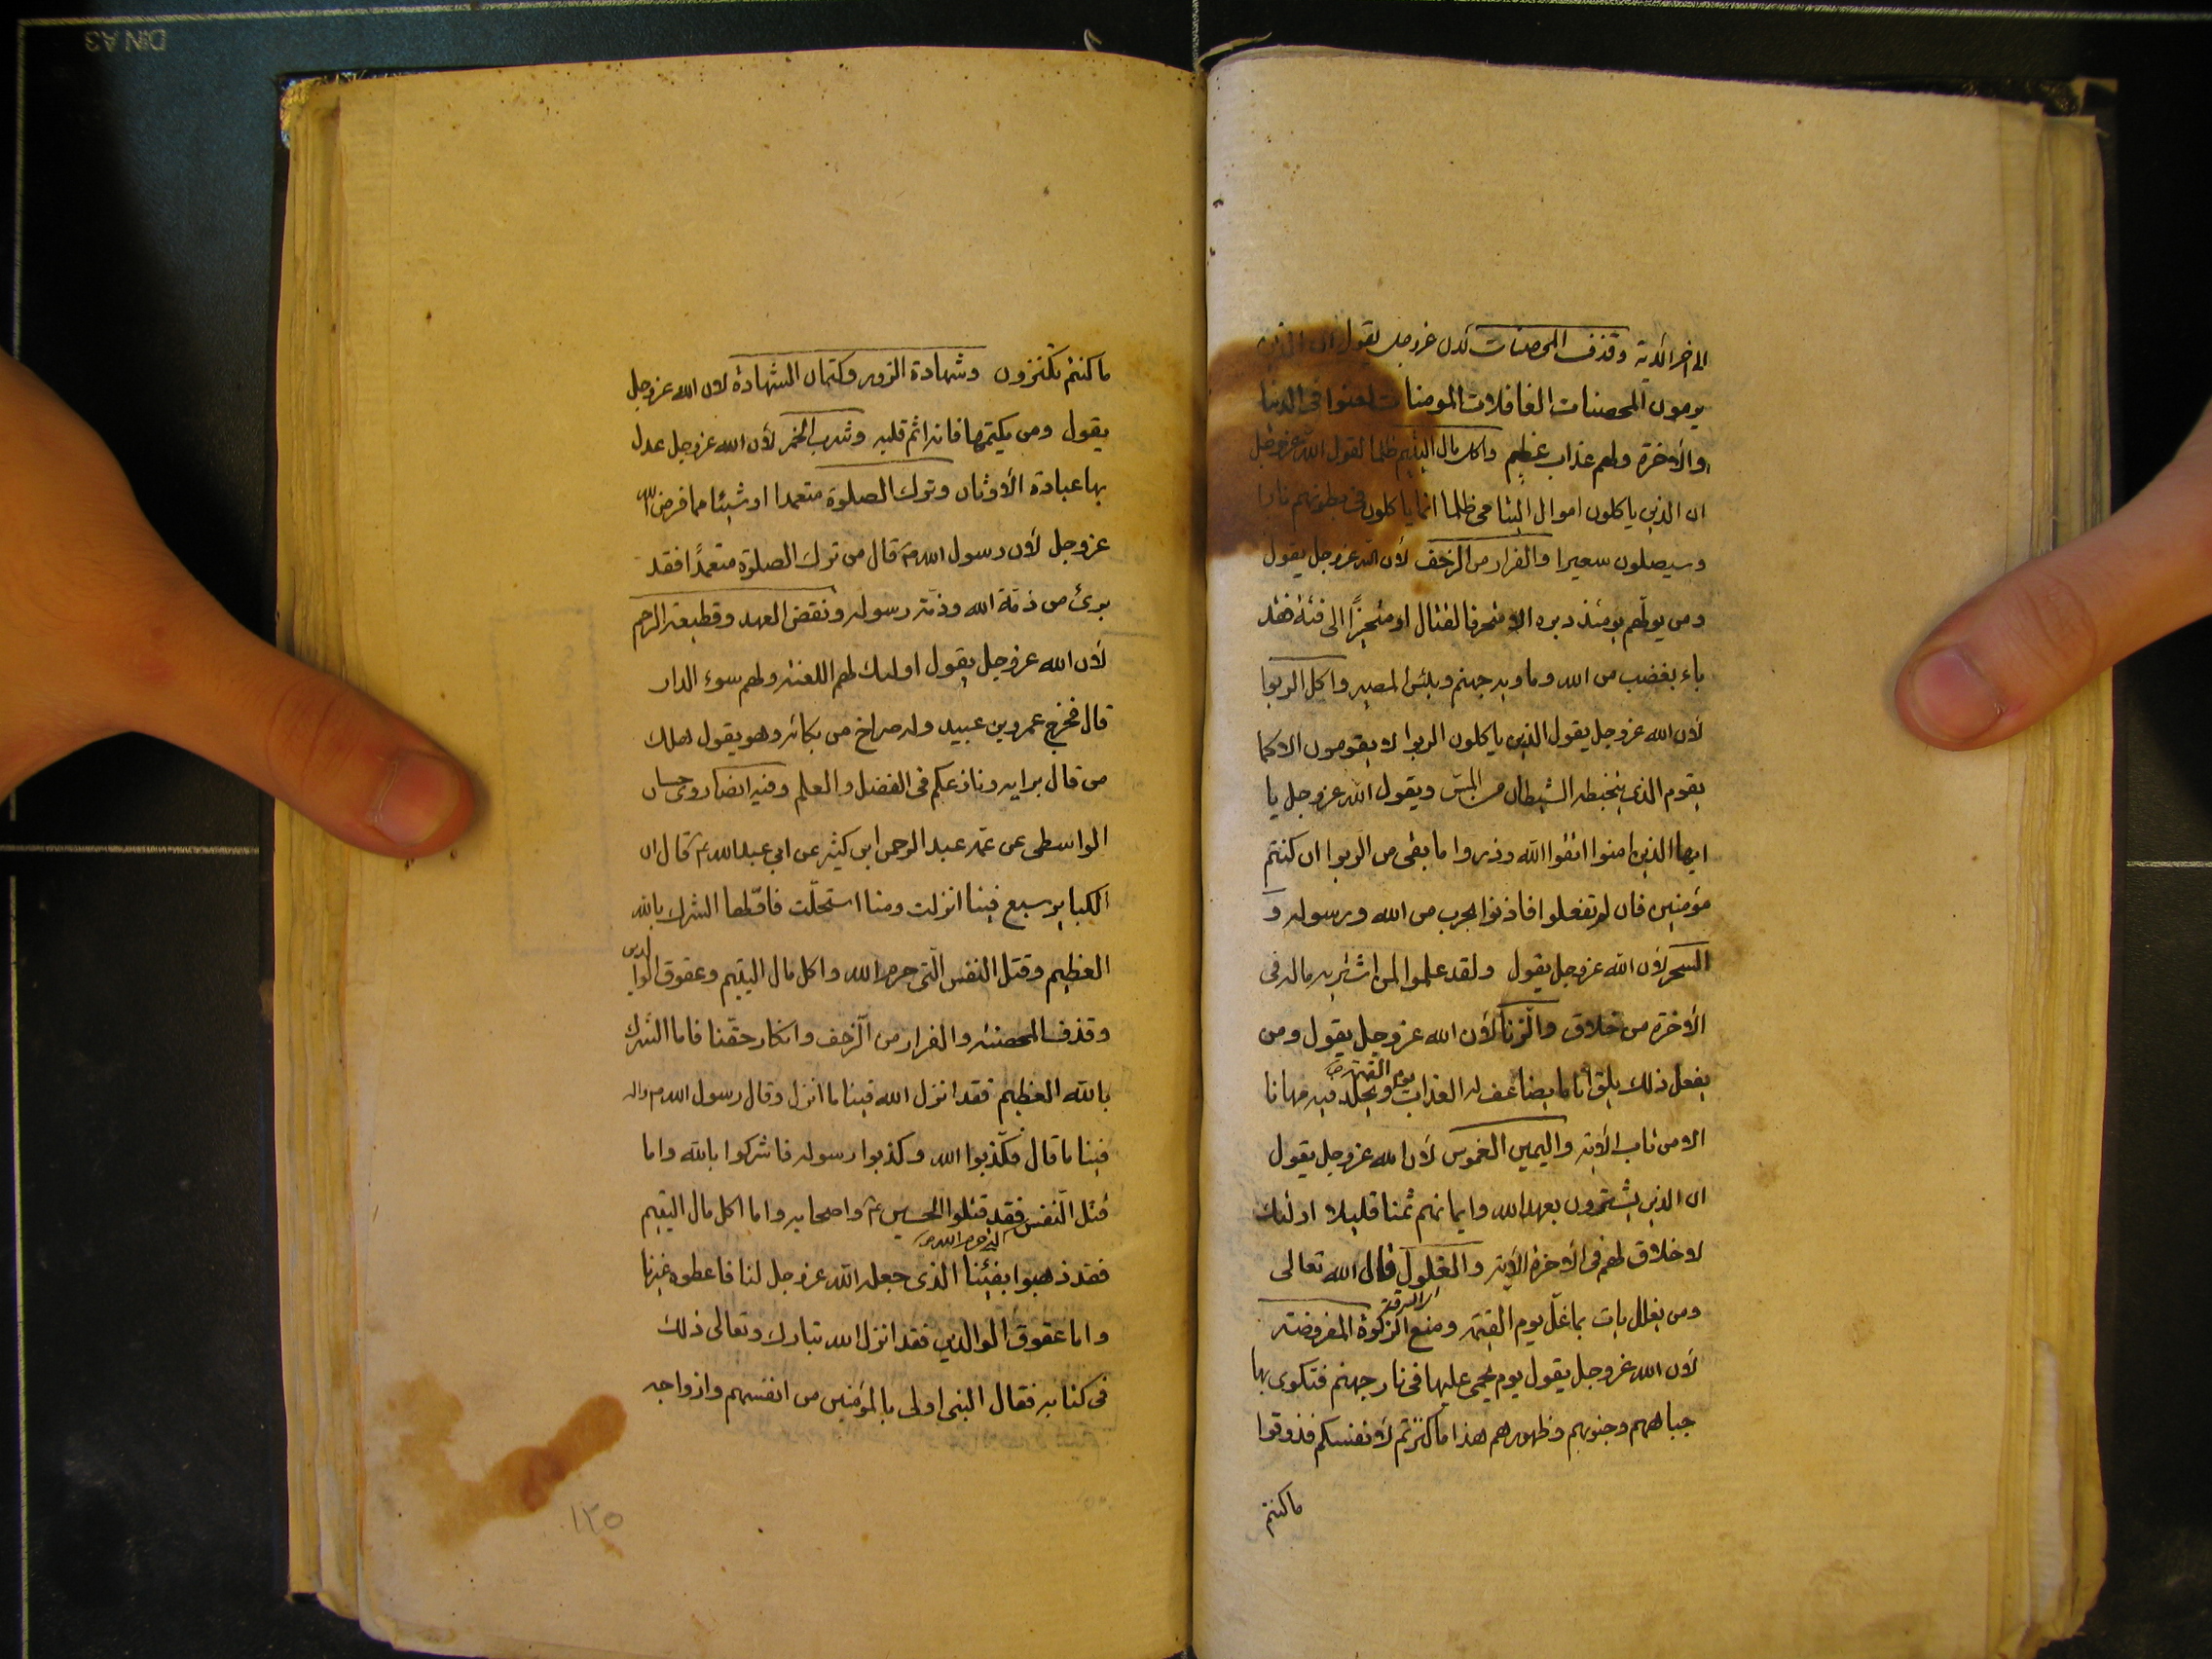 الى اخر الآية وقذف المحصنات لأن عزوجل يقول ان الذين
يرمون المحصنات الغافلات المومنات لعنوا فى الدنيا
والأخرة ولهم عذاب عظيم واكل مال اليتيم ظلما لقول الله عزوجل
ان الذين ياكلون اموال اليتامى ظلما انما ياكلون فى بطونهم نارا
وسيصلون سعيرا والفرار من الزحف لأن الله عزوجل يقول
ومن يولّهم يومئذ دبره الا متحرفا لقتال او متحيزًا الى فئة فقد
باء بغضب من الله وماويه جهنم وبئس المصير واكل الربوا
لأن الله عزوجل يقول الذين ياكلون الربوا لا يقومون الا كما
يقوم الذى يتخبطه الشيطان من المسّ ويقول الله عزوجل يا
ايها الذين امنوا اتقوا الله وذروا ما بقى من الربوا ان كنتم
مؤمنين فان لم تفعلوا فاذنوا بحرب من الله ورسوله و
السحر لأن الله عزوجل يقول ولقد علموا لمن اشتريه ماله فى
الأخرة من خلاق والزنا لأن الله عزوجل يقول ومن
يفعل ذلك يلق أثاما يضاعف له العذاب يوم القيمة ويخلد فيه مهانا
الا من تاب الأية واليمين الغموس لأن الله عزوجل يقول
ان الذين يشترون بعهد الله وايمانهم ثمنا قليلا اولئك
لا خلاق لهم فى الأخرة الأية والغلول قال الله تعالى
ومن يغلل يات بما غلّ يوم القيمة ومنع الزكوة المفروضة
لأن الله عزوجل يقول يوم يحمى عليها فى نار جهنم فتكوى بها
جباههم وجنوبهم وظهورهم هذا ما كنزتم لأنفسكم فذوقوا
ما كنتم
ما كنتم تكنزون وشهادة الزور وكتمان الشهادة لأن الله عزوجل
يقول ومن يكتمها فانه اثم قلبه وشرب الخمر لأن الله عزوجل عدل
بها عبادة الأوثان وترك الصلوة متعمدا او شيئا مما فرض الله
عزوجل لأن رسول الله ص قال من ترك الصلوة متعمدًا فقد
برئ من ذمّة الله وذمّة رسوله ونقض العهد وقطيعة الرحم
لأن الله عزوجل يقول اولئك لهم اللعنة ولهم سوء الدار
قال فخرج عمرو بن عبيد وله صراخ من بكائه وهو يقول هلك
من قال برايه ونازعكم فى الفضل والعلم وفيه ايضا روى حسان
الواسطى عن عمّه عبد الرحمن ابن كثير عن ابى عبد الله ع قال ان
الكباير سبع فينا انزلت ومنا استحلّت فاوّلها الشرك بالله
العظيم وقتل النفس الّتى حرم الله واكل مال اليتيم وعقوق الوالدين
وقذف المحصنة والفرار من الزحف وانكار حقّنا فاما الشرك
بالله العظيم فقد انزل الله فينا ما انزل وقال رسول الله ص واله
فينا ما قال فكذّبوا الله وكذبوا رسوله فاشركوا بالله واما
قتل النّفس التى حرم الله فقد قتلوا الحسين ع واصحابه واما اكل مال اليتيم
فقد ذهبوا بفيئنا الذى جعله الله عزوجل لنا فاعطوه غيرنا
واما عقوق الوالدين فقد انزل الله تبارك وتعالى ذلك
فى كتابه فقال النبى اولى بالمؤمنين من انفسهم وازواجه
١٢٥
DIN A3